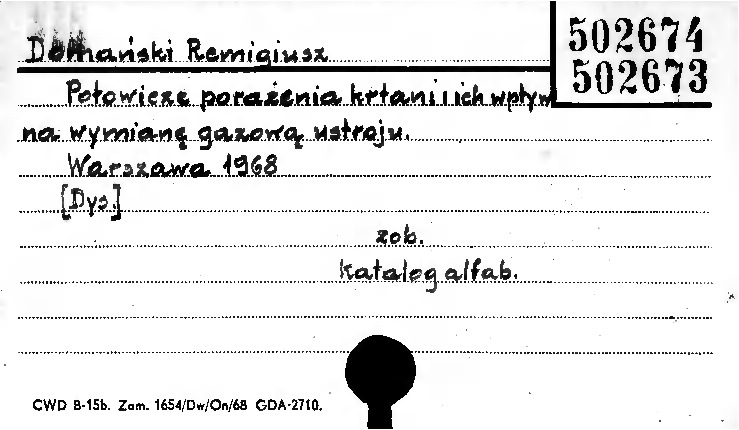 Domański Remigiusz
502674
502673
Połowicze porażenia krtani i ich wpływ
na wymianę gazową ustroju.
Warszawa 1968
[Dys.]
zob.
katalog alfab.
CWD B-15b. Zam. 1654/Dw/On/68 GDA-2710.